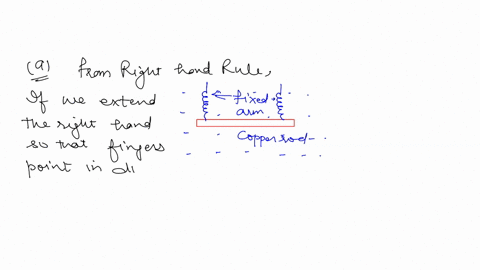 (a) From Right hand Rule,
If we extend
the right hand
so that fingers
point in di
fixed
arm.
Copper rod